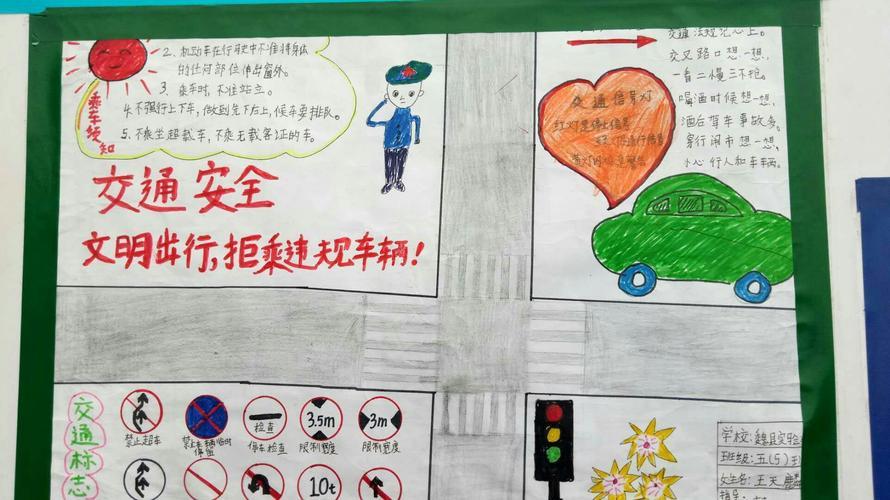 2、机动车在行驶中不准将身体
的任何部位伸出窗外。
3、乘车时,不准站立。
4.不强行上下车,做到先下后上,候车要排队。
5、不乘坐超载车,不乘无载客证的车。
乘车须知
交通安全
文明出行,拒乘违规车辆!
交通法规记心上。
交叉路口想一想,
一看二慢三不抢。
喝酒时候想一想,
酒后驾车事故多。
穿行闹市想一想,
小心行人和车辆。
交通信号灯
红灯是停止信号
交通标志
禁止超车
停车检查
检查
3.5m
限制宽度
3m
限制宽度
10t
学校:魏县实验
班级:五(5)王
姓名:王天